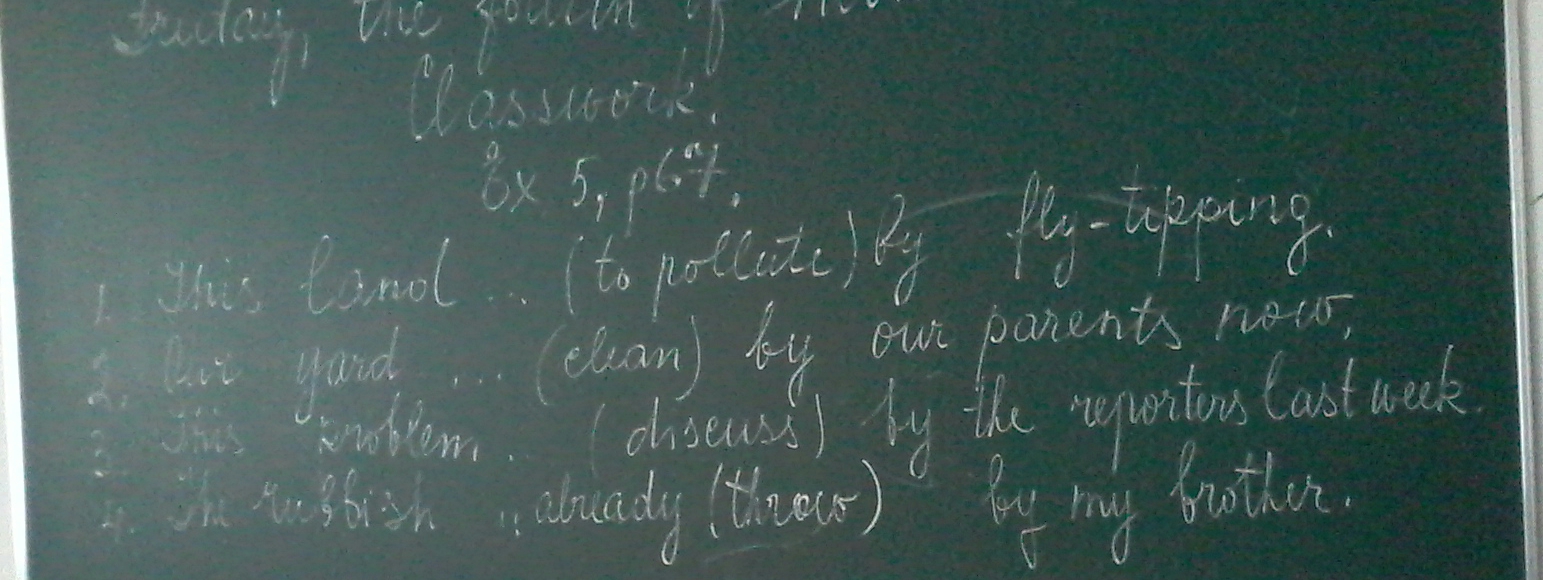 the
Classwork.
Ex 5, p 67.
1. This land ... (to pollute) by fly-tipping.
2. Our yard ... (clean) by our parents now.
3. This problem .. (discuss) by the reporters last week.
4. The rubbish ... already (throw) by my brother.